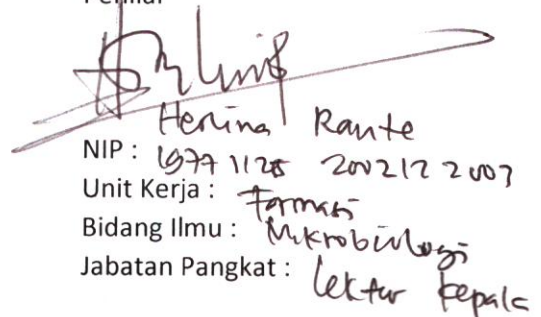 Herlina Rante
NIP : 19771125 200212 2 003
Unit Kerja : Farmasi
Bidang Ilmu : Mikrobiologi
Jabatan Pangkat : Lektor kepala